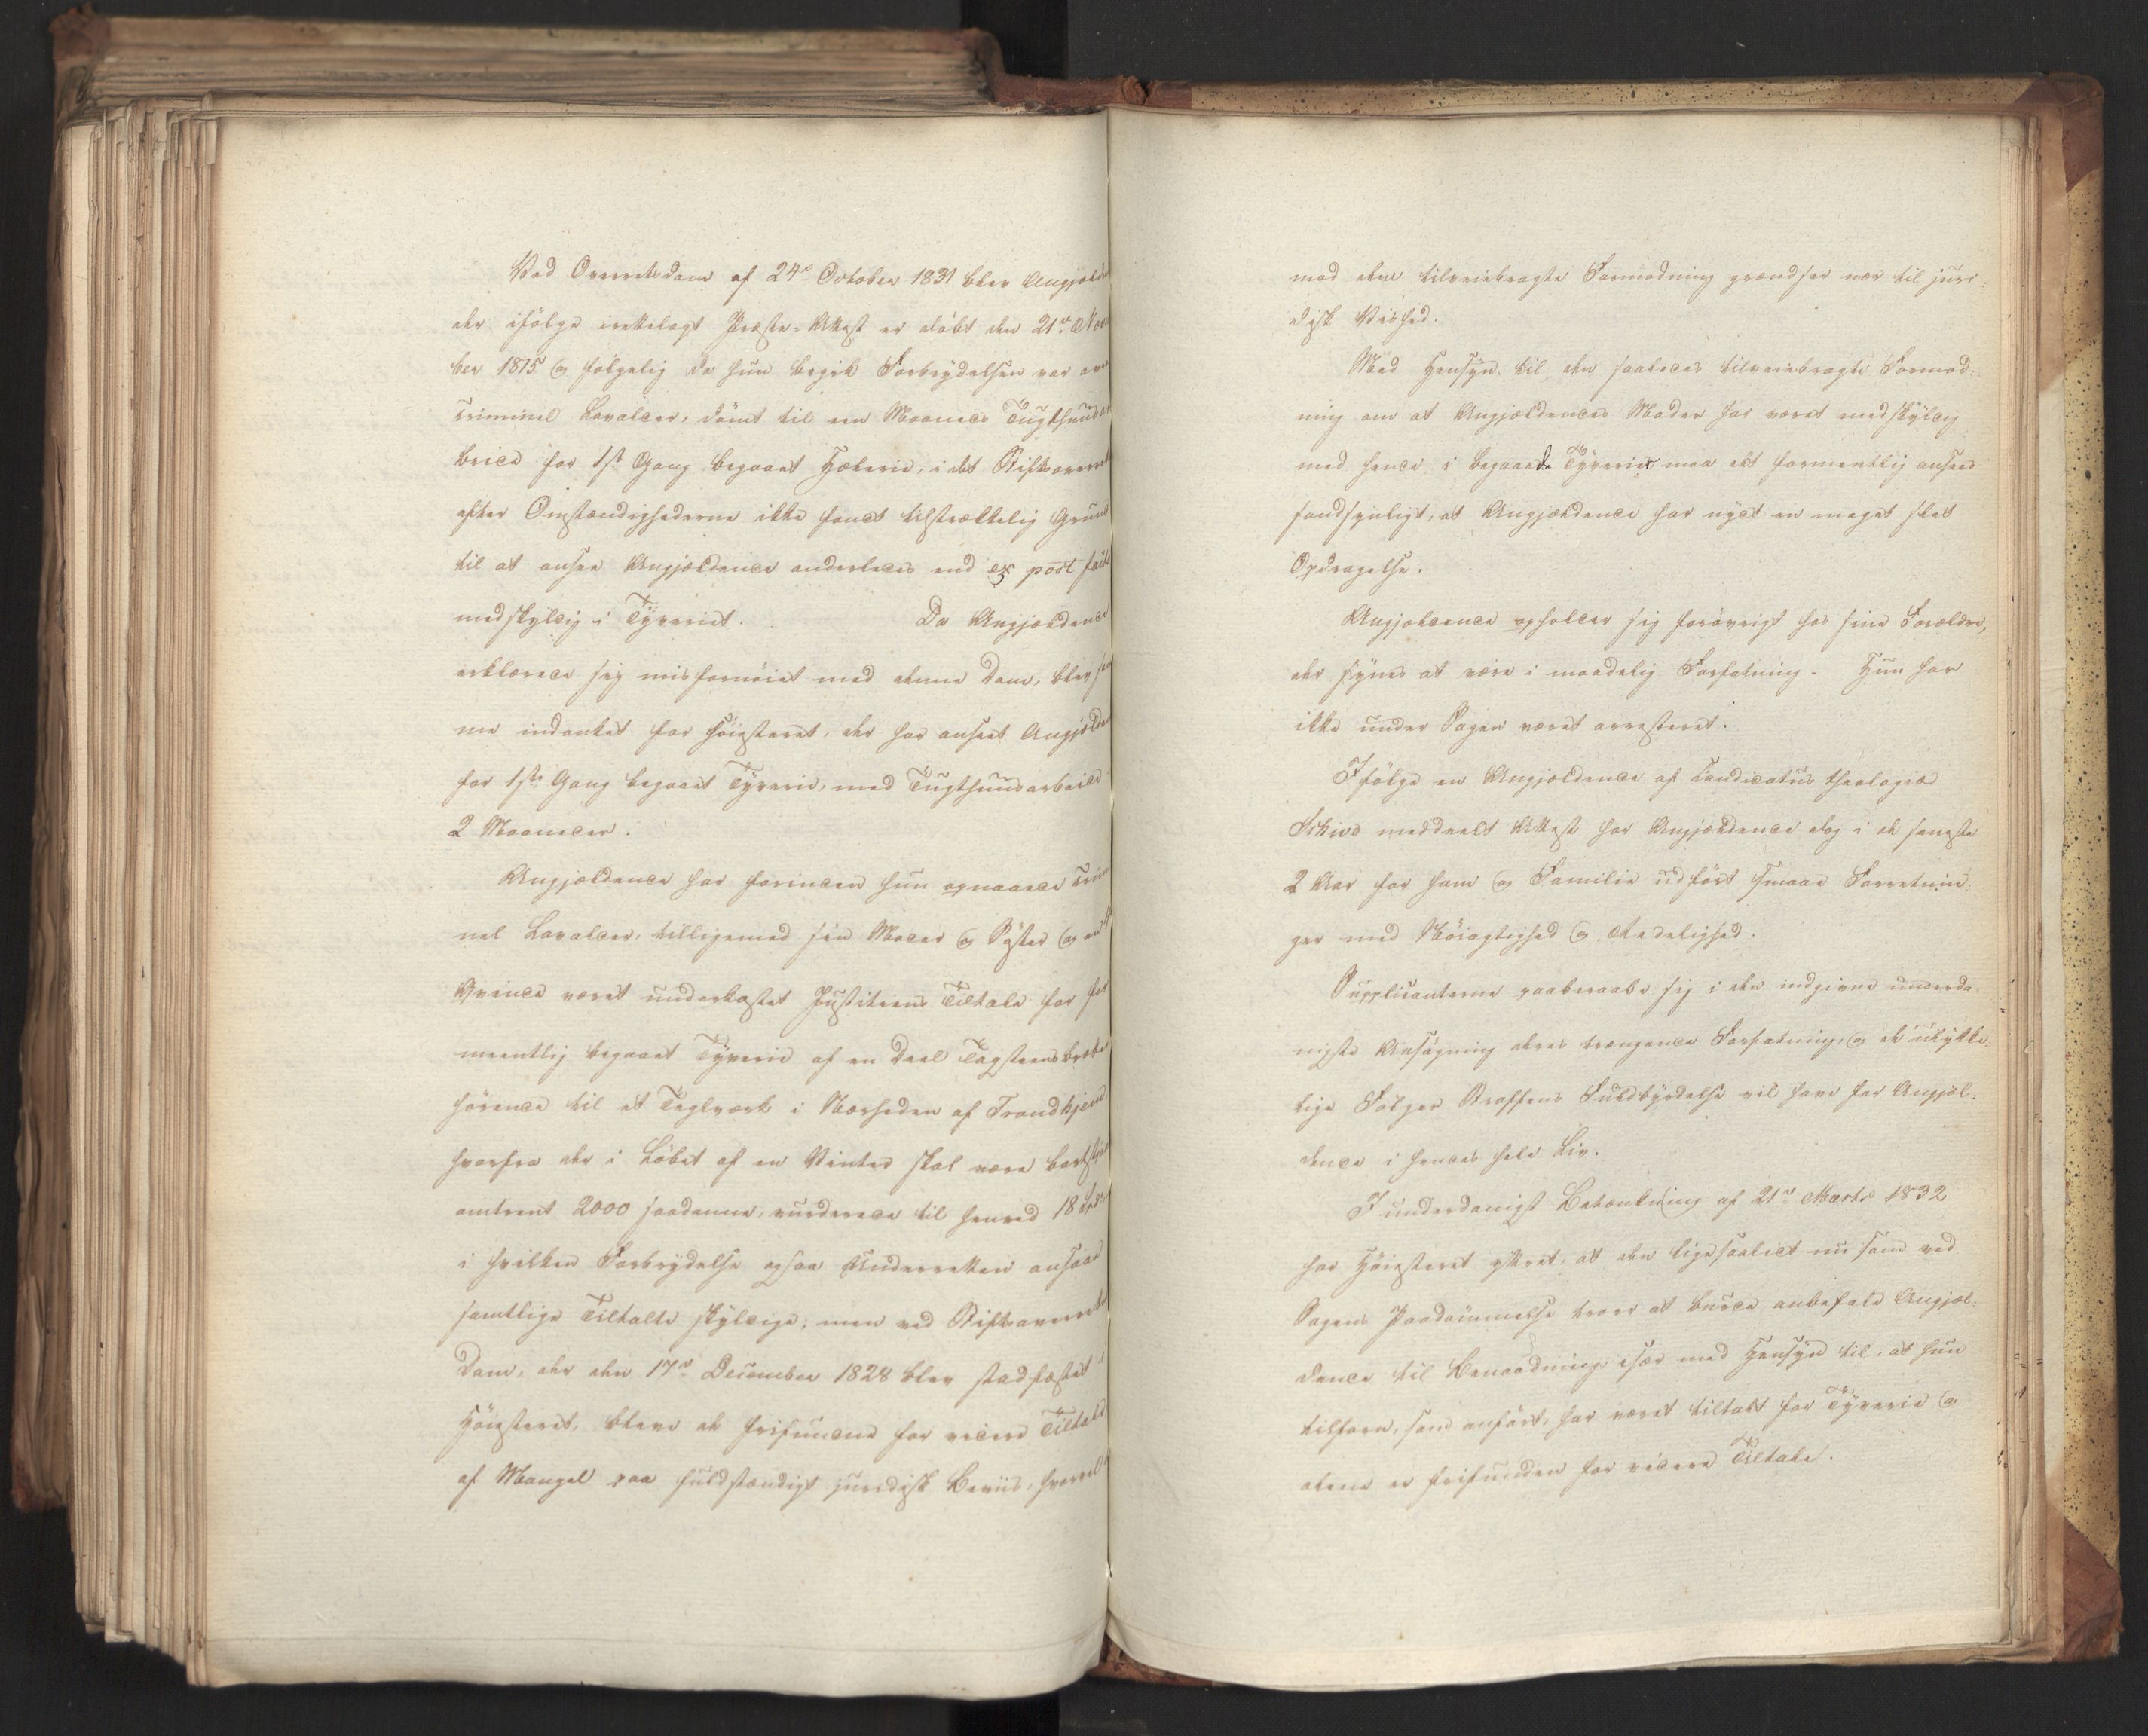 Ved Overretsdom af 24de October 1831 blev Angjæld
der ifölge irettelagt Præste-Attest er döbt den 21de Nov
ber 1815 og fölgelig da hun begik Forbrydelsen var over
criminel Lavalder, dömt til een Maaneds Tugthuusar
beide for 1ste Gang begaaet Hæleri, i det Stiftsoverret
efter Omstændighederne ikke fandt tilstrækkelig Grund
til at ansee Angjældende anderledes end ex post facto
medskyldig i Tyveriet. Da Angjældende
erklærede sig misfornöiet med denne Dom, blev sam
me indanket for Höiesteret, der har anseet Angjælden
for 1ste Gang begaaet Tyverie, med Tugthuusarbeide
2 Maaneder.
Angjældende har forinden hun opnaaede Crimi
nel Lavalder, tilligemed sin Moder og Söster og
Qvinde været underkastet Justitiens Tiltale for for
meentlig begaaet Tyverie af en Deel Tagsteens
hörende til et Teglværk i Nærheden af Trondhjem
hvorfra der i Löbet af en Vinter skal være bortstj
omtrent 2000 saadanne, vurderede til henved 18 Spd
i hvilken Forbrydelse ogsaa Underretten ansaae
samtlige Tiltalte skyldige; men ved Stiftsoverret
Dom, der den 17de December 1828 blev stadfæstet i
Höiesteret, bleve de frifundne for videre Tiltale
af Mangel paa fuldstændigt juridisk Beviis, hvorvel
mod dem tilveiebragte Formodning grændser nær til juri-
disk Vished.
Med Hensyn til den saaledes tilveiebragte Formod-
ning om at Angjældendes Moder har været medskyldig
med hende i begaaede Tyverier maa det formentlig ansees
sandsynligt, at Angjældende har nydt en meget slet
Opdragelse.
Angjældende opholder sig forövrigt hos sine Forældre,
der synes at være i maadelig Forfatning. Hun har
ikke under Sagen været arresteret.
Ifölge en Angjældende af Candidatus theologiæ
Schive meddeelt Attest har Angjældende dog i de seneste
2 Aar for ham og Familie udfört smaae Forretnin-
ger med Nöiagtighed og Redelighed.
Supplicanterne paaberaabe sig i den indgivne underda-
nigste Ansögning deres trængende Forfatning, og de ulykke-
lige Fölger Straffens Fuldbyrdelse vil have for Angjæl-
dende i hendes hele Liv.
I underdanigst Betænkning af 21de Marts 1832
har Höiesteret yttret, at den ligesaalidt nu som ved
Sagens Paadömmelse troer at burde anbefale Angjæl-
dende til Benaadning især med Hensyn til, at hun
tilforn, som anfört, har været tiltalt for Tyverie og
alene er frifunden for videre Tiltale.